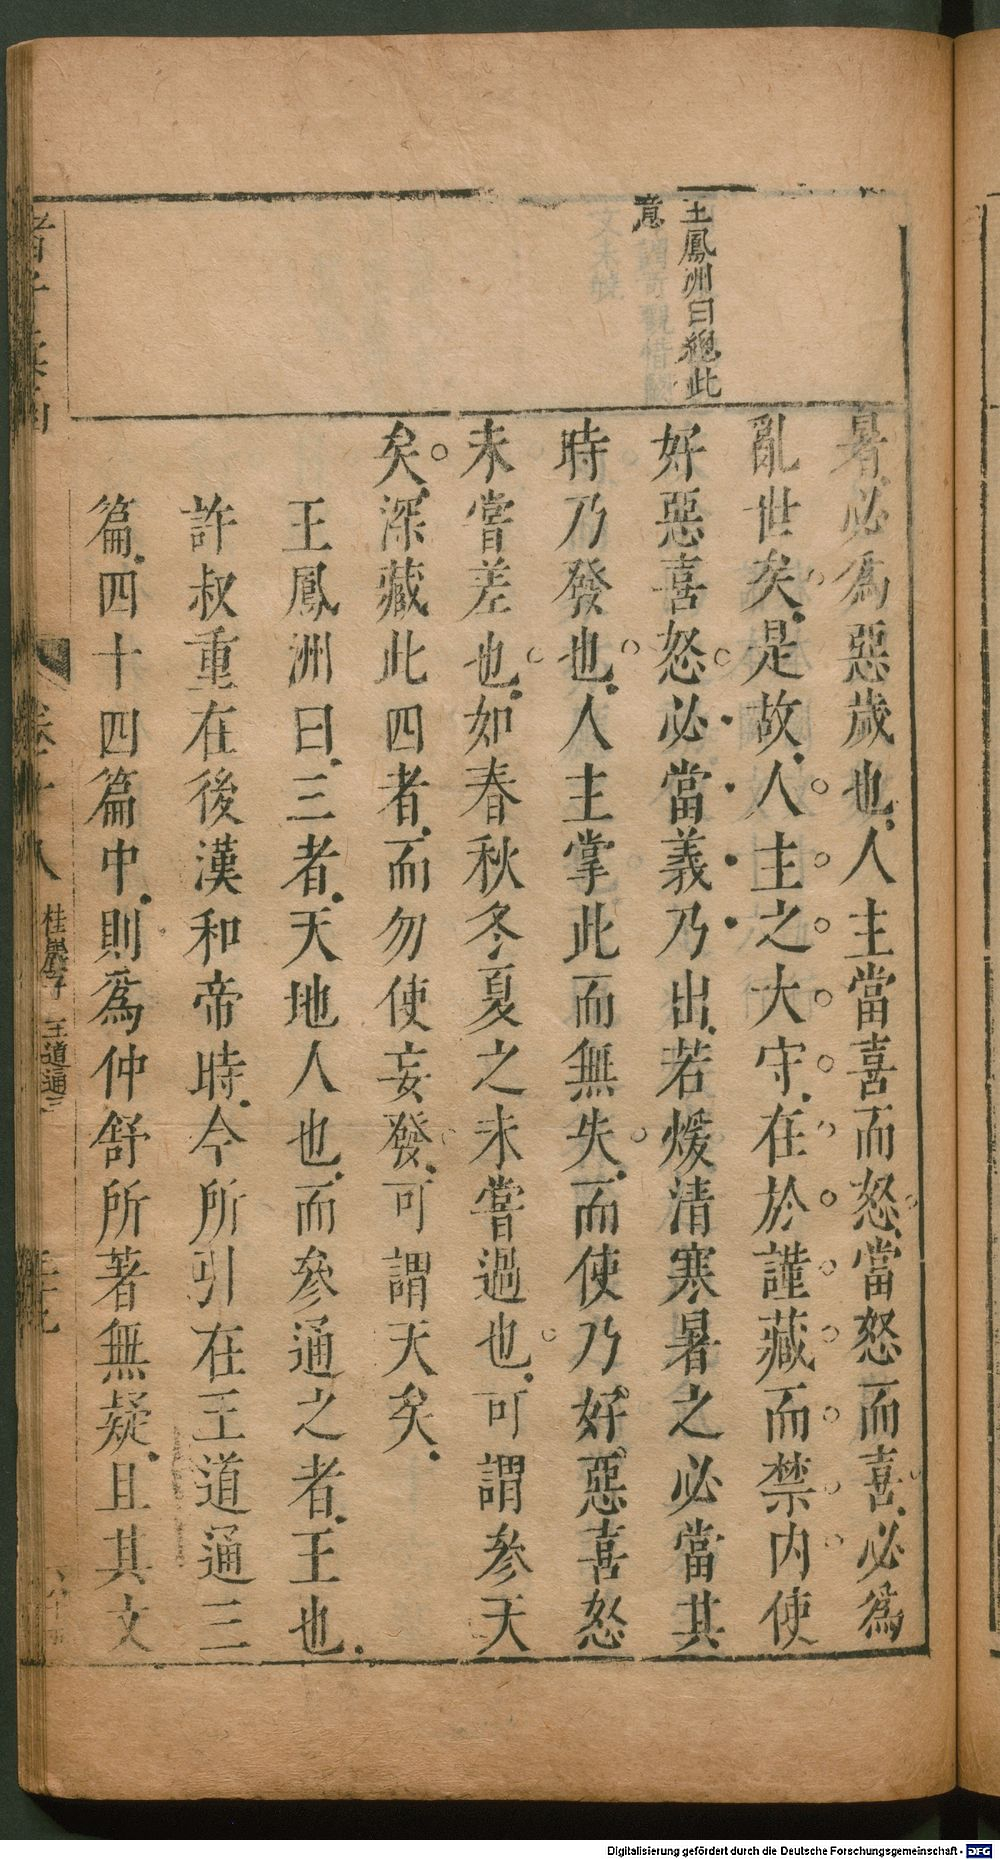 王鳳洲曰總此
意
暑必為惡歲也人主當喜而怒當怒而喜必為
亂世矣是故人主之大守在於謹藏而禁內使
好惡喜怒必當義乃出若煖清寒暑之必當其
時乃發也人主掌此而無失而使乃好惡喜怒
未嘗差也如春秋冬夏之未嘗過也可謂參天
矣深藏此四者而勿使妄發可謂天矣
王鳳洲曰三者天地人也而參通之者王也
許叔重在後漢和帝時今所引在王道通三
篇四十四篇中則爲仲舒所著無疑且其文
桂巖子 王道通三
Digitalisierung gefördert durch die Deutsche Forschungsgemeinschaft - DFG